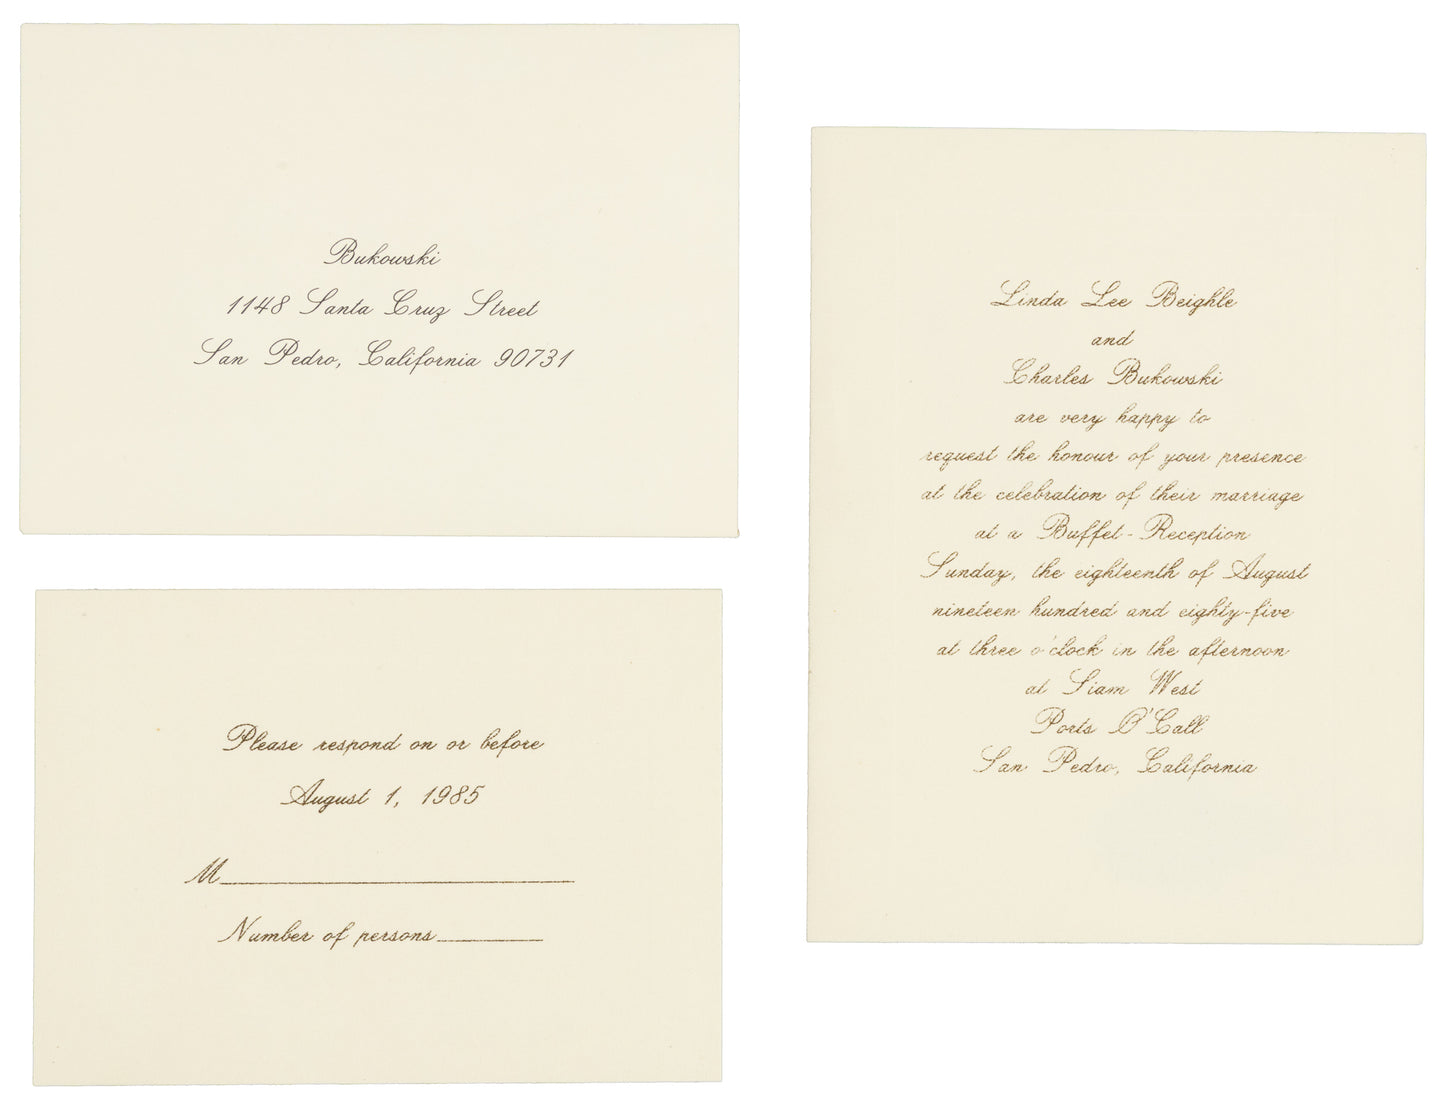 Bukowski
1148 Santa Cruz Street
San Pedro, California 90731
Please respond on or before
August 1, 1985
M
Number of persons
Linda Lee Beighle
and
Charles Bukowski
are very happy to
request the honour of your presence
at the celebration of their marriage
at a Buffet-Reception
Sunday, the eighteenth of August
nineteen hundred and eighty-five
at three o'clock in the afternoon
at Siam West
Ports O'Call
San Pedro, California